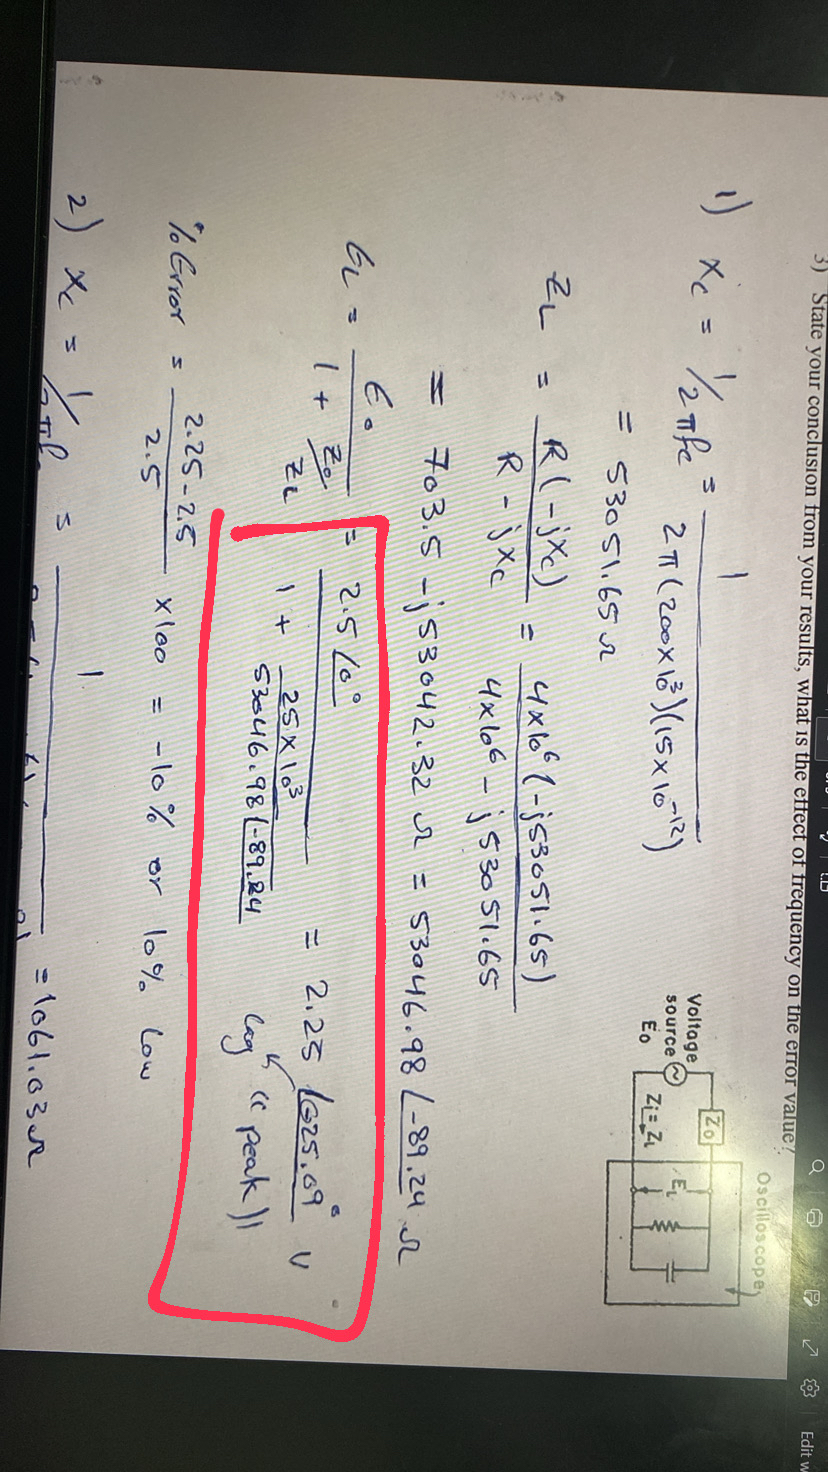 3) State your conclusion from your results, what is the effect of frequency on the error value?
Oscilloscope
Voltage
source
E₀
Z₀
Zᵢ = Z_L
E_L
1) Xc = 1/2πfc = 1 / 2π(200×10³)(15×10⁻¹²)
= 53051.65 Ω
Z_L = R(-jXc) / R - jXc = 4×10⁶(-j53051.65) / 4×10⁶ - j53051.65
= 703.5 - j53042.32 Ω = 53046.98 ∠-89.24 Ω
E_L = E₀ / 1 + Z₀/Z_L = 2.5∠0° / 1 + 25×10³/53046.98∠-89.24 = 2.25 ∠-25.09° V
lag "peak"
% Error = 2.25 - 2.5 / 2.5 × 100 = -10% or 10% Low
2) Xc = 1/2πfc = 1 = 1061.03 Ω
Edit